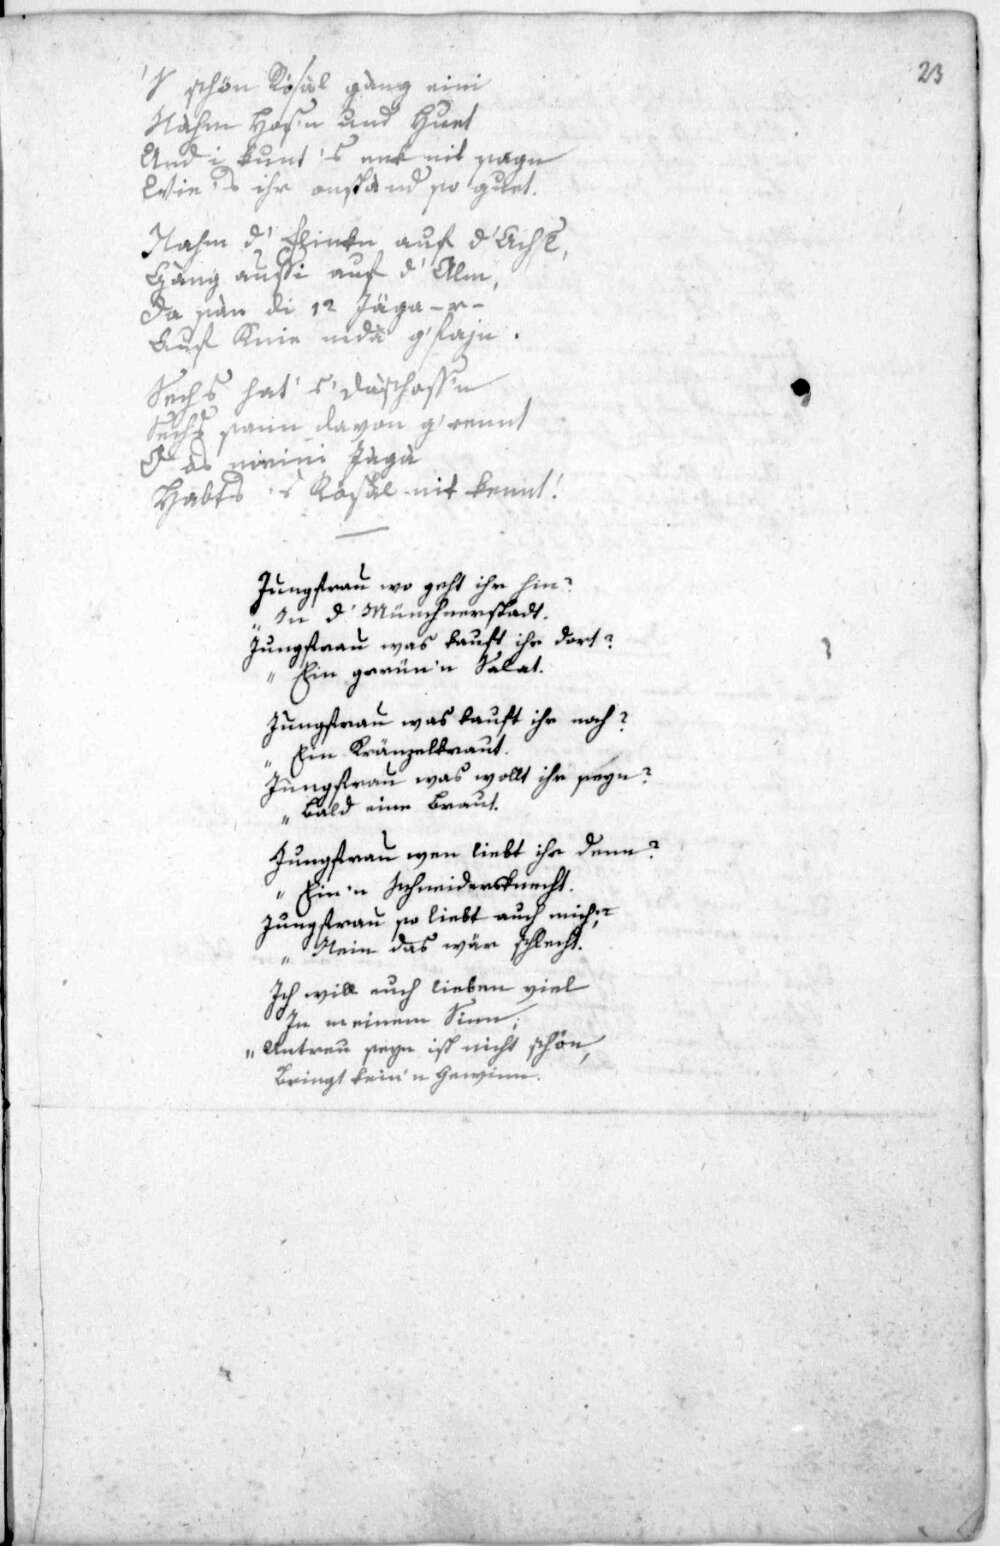 23
'S schön Rosàl gàng eini
Nàhm Hos'n und Huet
Und i kunt 's enk nit sagn
Wie 's ihr anständ so guet.
Nahm d' Flinkn auf d'Achsl,
Gàng aussi auf d' Alm,
Da sàn di 12 Jäga-r-
Auf Knie nidà g'falln.
Sechs hat s' dàschoss'n
Sechs sann davon g'rennt
O ös meini Jàgà
Habts 's Rosàl nit kennt!
Jungfrau wo geht ihr hin?
" In d' Münchnerstadt.
Jungfrau was kauft ihr dort?
" Ein grrün'n Salat.
Jungfrau was kauft ihr noch?
" Ein Kränzelkraut.
Jungfrau was wollt ihr seyn?
" Bald eine Braut.
Jungfrau wen liebt ihr denn?
" Ein'n Schneidersknecht.
Jungfrau so liebt auch mich?
" Nein das wär schlecht.
Ich will euch lieben viel
In meinem Sinn;
" Untreu seyn ist nicht schön,
Bringt kein'n Gewinn.